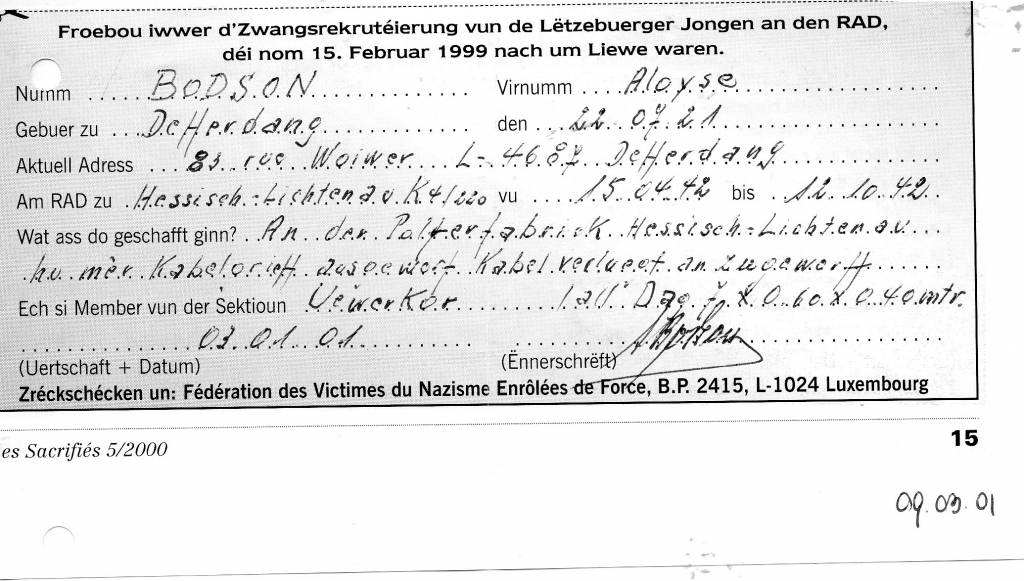 Froebou iwwer d'Zwangsrekrutéierung vun de Lëtzebuerger Jongen an den RAD,
déi nom 15. Februar 1999 nach um Liewe waren.
Numm BODSON Virnumm Aloyse
Gebuer zu Defferdang den 22 07 21
Aktuell Adress 83 rue Woiwer L-4687 Defferdang
Am RAD zu Hessisch-Lichtenau K4/220 vu 15.04.42 bis 12.10.42
Wat ass do geschafft ginn? An der Polferfabrick Hessisch-Lichtenau
hu mèr Kabelgrieff ausgeworf Kabel verluegt an zugeworff
Ech si Member vun der Sektioun Uewerkor 1 all Dag 7 x 0.60 x 0.40 mtr.
03.01.01
(Uertschaft + Datum) (Ënnerschrëft)
Zréckschécken un: Fédération des Victimes du Nazisme Enrôlées de Force, B.P. 2415, L-1024 Luxembourg
es Sacrifiés 5/2000 15
09.03.01